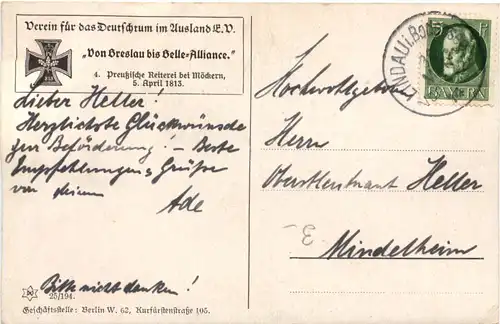 Verein für das Deutschtum im Ausland E.V.
„Von Breslau bis Belle-Alliance."
4. Preußische Reiterei bei Möckern,
5. April 1813.
Lieber Heller!
Herzlichste Glückwünsche
zur Beförderung! – Beste
Empfehlungen & Grüße
von deinem
Ade
Bitte nicht danken!
25/194.
Geschäftsstelle: Berlin W. 62, Kurfürstenstraße 105.
LINDAU i. Bo
5 PF
BAYERN
Hochwohlgeboren
Herrn
Oberstleutnant Heller
Mindelheim